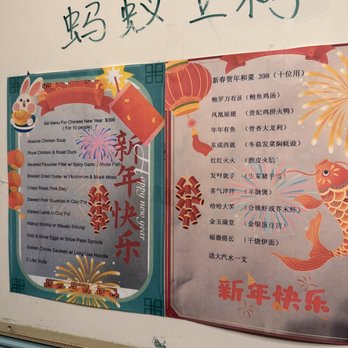 蚂蚁上树
Set Menu For Chinese New Year $398
( For 10 people)
Abalone Chicken Soup
Royal Chicken & Roast Duck
Sauteed Flounder Filet w/ Spicy Garlic
Braised Dried Oyster w/ Mushroom & Black Moss
Crispy Roast Pork
Walnut Shrimp w/ Wasabi Shrimp
Gold & Silver Eggs w/ Snow Peas Sprouts
w/ Long Live Noodle
2 Liter Soda
新年快乐
Happy new year
新春贺年和菜 398（十位用）
鲍罗万有 （鲍鱼鸡汤）
凤凰展翅 （贵妃鸡拼火鸭）
年年有鱼 （骨香大龙利）
东成西就 （冬菇发菜焖蚝豉）
红红火火 （脆皮火腩）
发财就手 （生菜猪手）
喜气洋洋 （羊腩煲）
哈哈大笑 （合桃虾成芥末虾）
金玉满堂 （金银蛋豆苗）
福寿绵长 （干烧伊面）
送大汽水一支
新年快乐